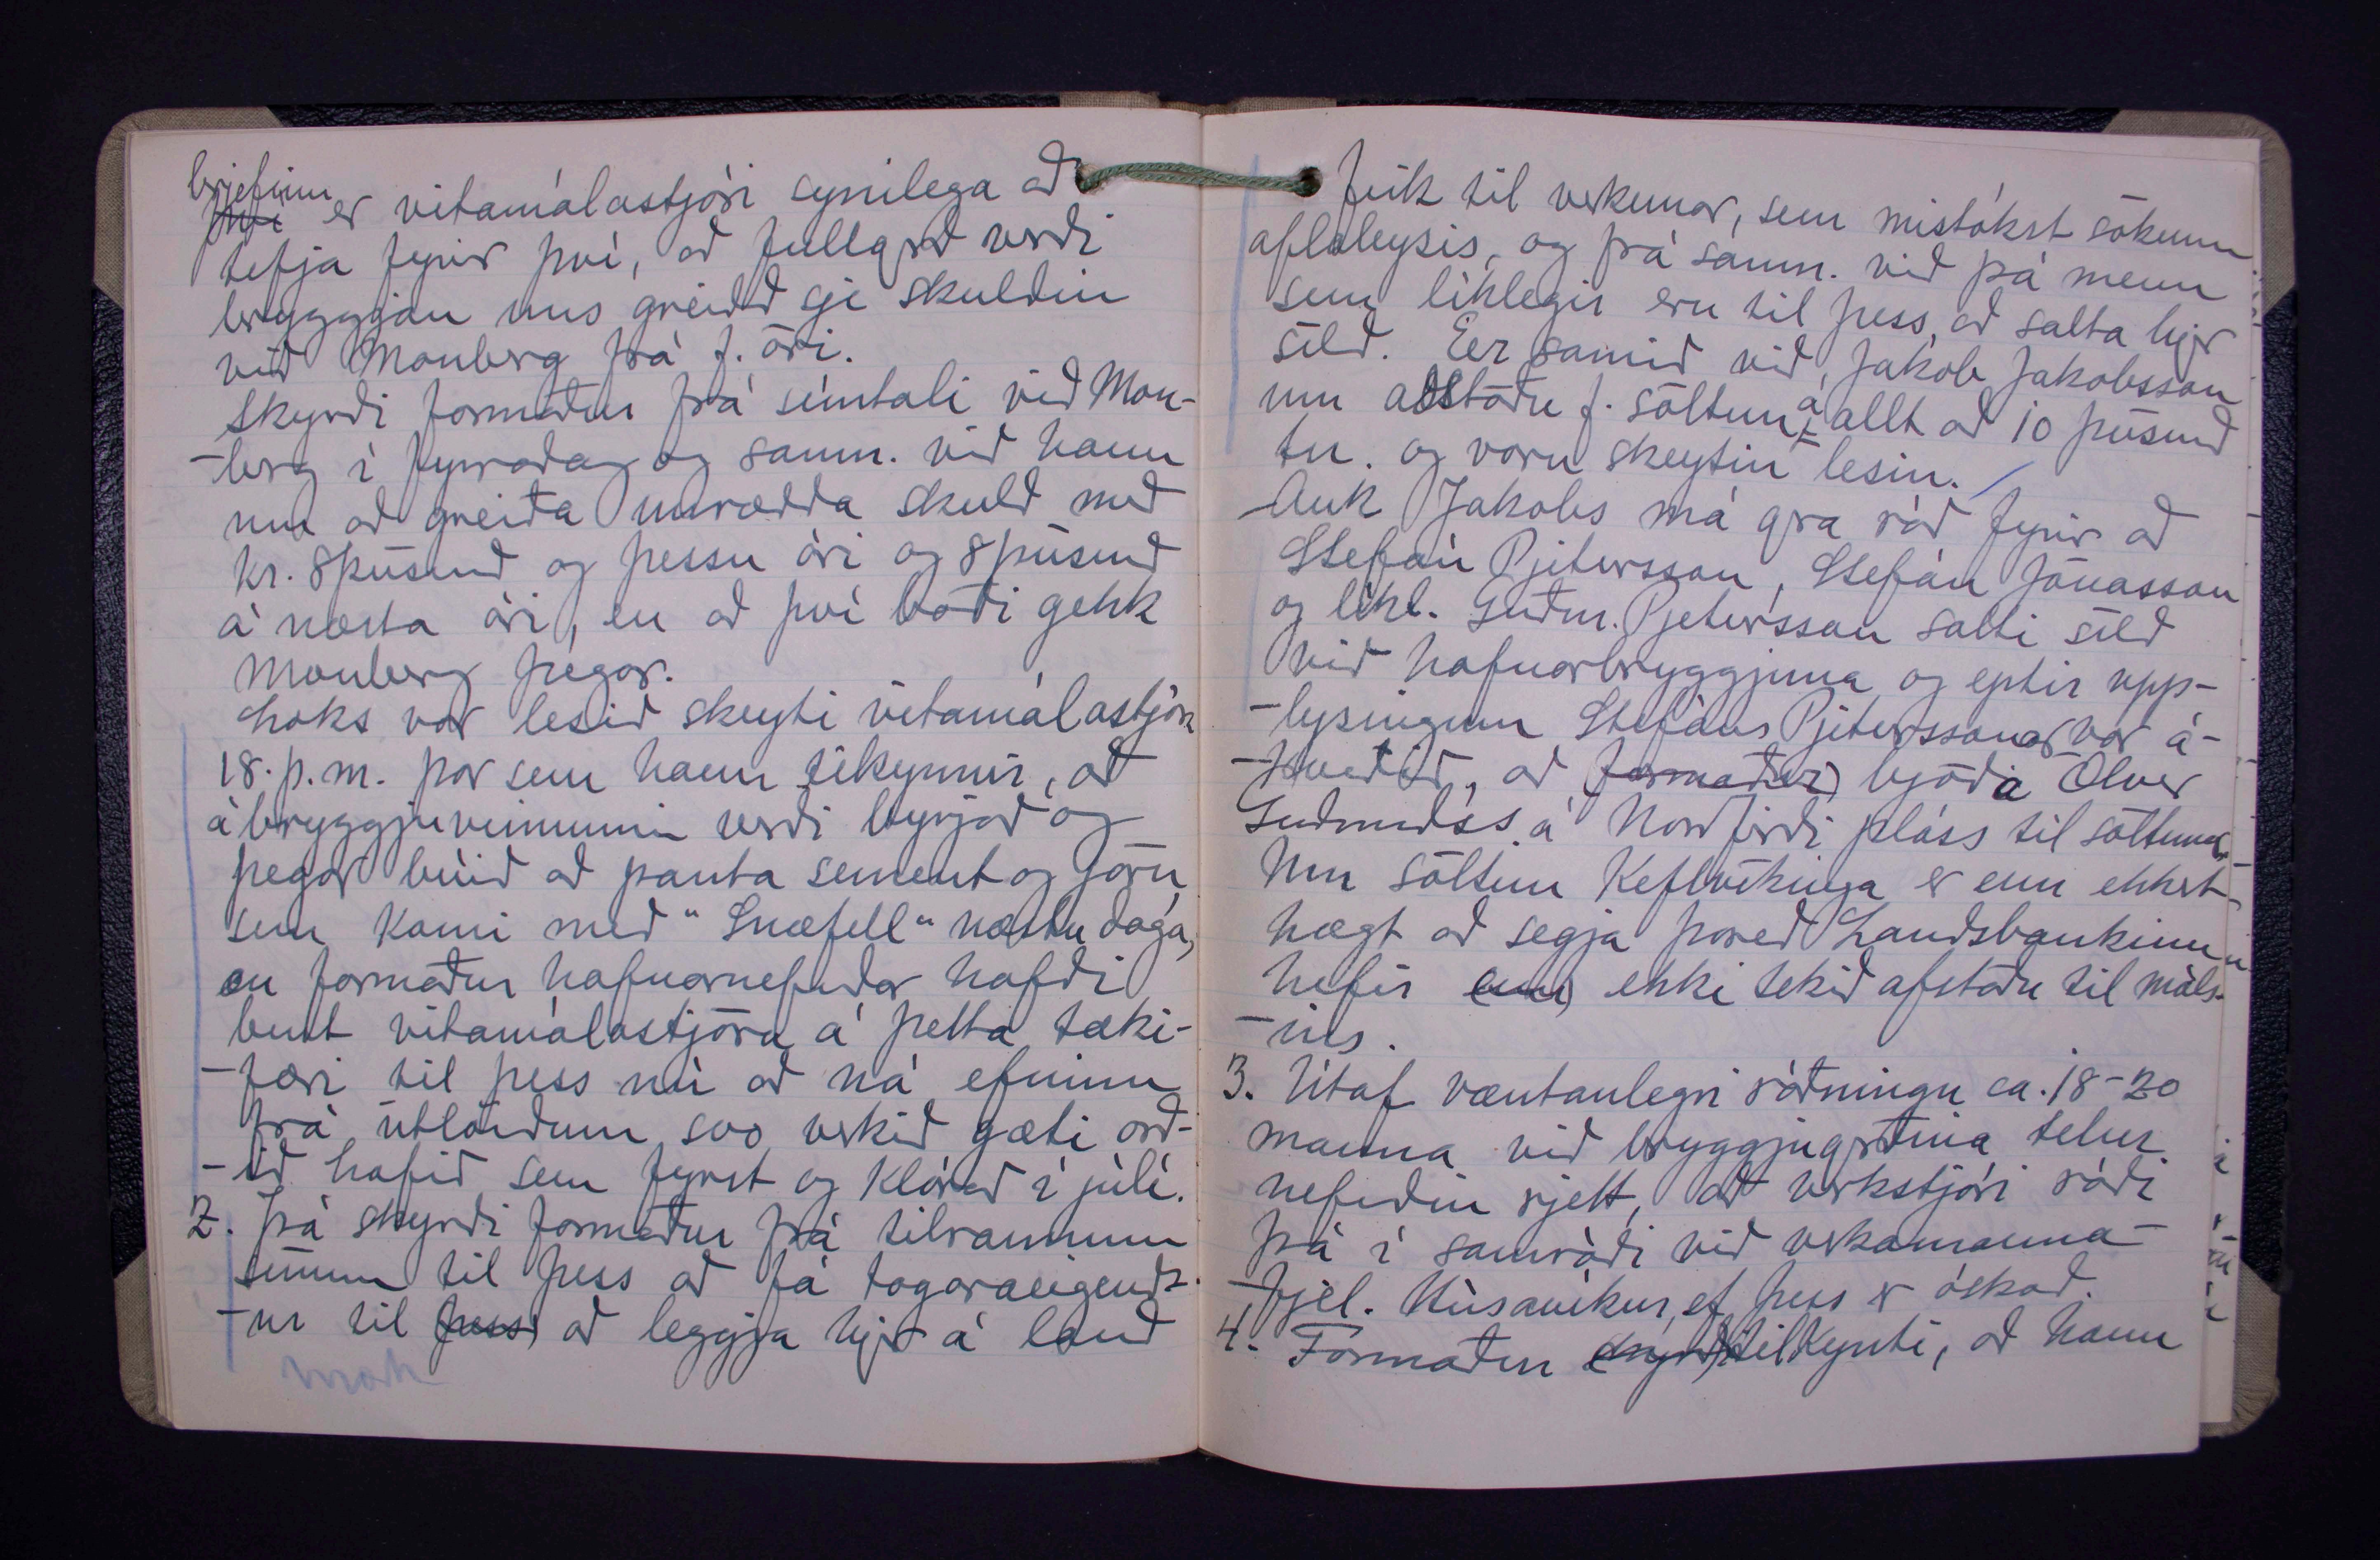 brjefinu
því er vitamálastjóri synilega að
tefja fyrir því, að fullgrð verði
bryggjan uns greidd sje skuldin
við Monberg frá f. ári.
Skyrði formaður frá símtali við Mon-
-berg í fyrradag og samn. við hann
um að greiða umrædda skuld með
kr. 8 þúsund og þessu ári og 8 þúsund
á næsta ári, en að því boði gekk
Monberg þegar.
Loks var lesið skeyti vitamálastjóra
18. þ.m. þar sem hann tilkynnir, að
á bryggjuvinnunni verði byrjað og
þegar búið að panta sement og járn
sem komi með "Snæfell" næstu daga,
en formaður hafnarnefndar hafði
bent vitamálastjóra á þetta tæki-
-færi til þess nú að ná efninu
frá útlöndum svo verkið gæti orð-
-ið hafið sem fyrst og klárað í júlí.
2. Þá skyrði formaður frá tilraunum
sínum til þess að fá togaraeigend-
-ur til þess að leggja hjer á land
fisk til verkunar, sem mistókst sökum
aflaleysis, og frá samn. við þá menn
sem líklegir eru til þess, að salta hjer
síld. Er samið við Jakob Jakobsson
um aðstöðu f. söltun á allt að 10 þúsund
tn. og voru skeytin lesin.
Auk Jakobs má gra ráð fyrir að
Stefán Pjetursson, Stefán Jónasson
og líkl. Guðm. Pjetursson salti síld
við hafnarbryggjuna og eptir upp-
-lysingum Stefáns Pjeturssonar var á-
-kveðið, að formaður bjóða Ölver
Guðmundss. á Norðfirði pláss til söltunar.
Um söltun Keflvíkinga er enn ekkert
hægt að segja þareð Landsbankinn
hefir enn ekki tekið afstöðu til máls-
-ins.
3. Útaf væntanlegri ráðningu ca. 18-20
manna við bryggjugrðina telur
nefndin rjett, að verkstjóri ráði
þá í samráði við verkamanna-
-fjel. Húsavíkur, ef þess er óskað.
4. Formaður skyrði tilkynti, að hann